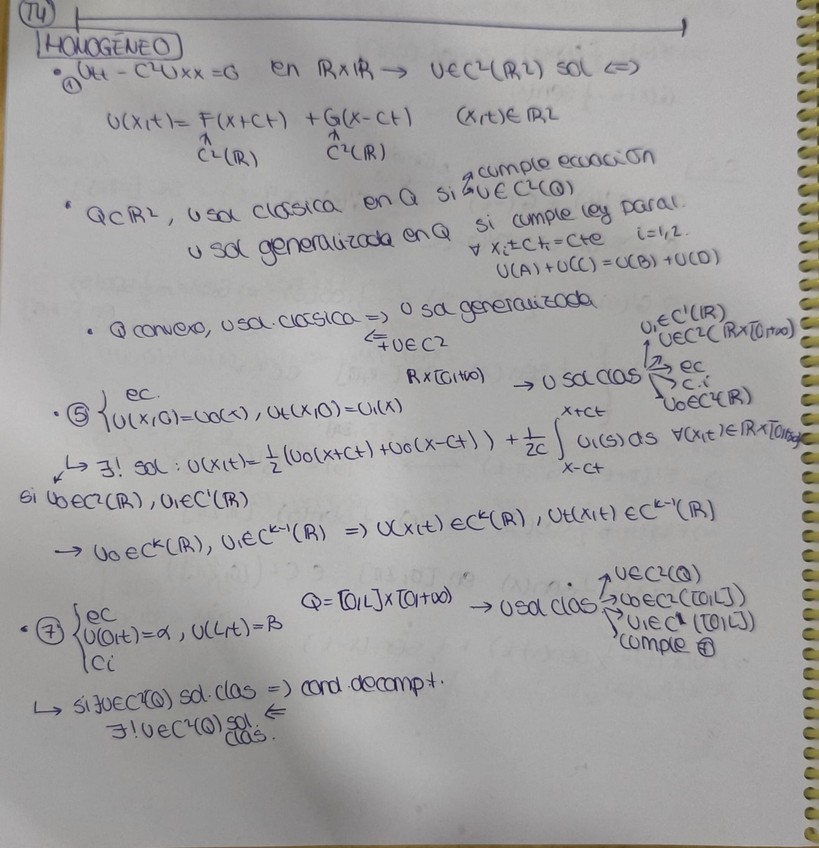 T4
HOMOGÉNEO
• ① Utt - C²Uxx = 0 en ℝxℝ → U∈C²(ℝ²) sol <=>
U(x,t) = F(x+ct) + G(x-ct) (x,t)∈ℝ²
↑ C²(ℝ) ↑ C²(ℝ)
• Q⊂ℝ², U sol clásica en Q si cumple ecuación
U∈C²(Q)
U sol generalizada en Q si cumple ley paral.
∀ xi ± cti = cte i=1,2.
U(A)+U(C)=U(B)+U(D)
• Q convexo, U sol. clásica => U sol generalizada
<= + U∈C2
• ⑤ { ec.
U(x,0)=U0(x), Ut(x,0)=U1(x)
ℝx[0,+∞) → U sol clas
U1∈C¹(ℝ)
U∈C²(ℝx[0,+∞)
ec
c.i
U0∈C²(ℝ)
↳ ∃! sol : U(x,t) = 1/2 (U0(x+ct)+U0(x-ct)) + 1/2c ∫_{x-ct}^{x+ct} U1(s) ds ∀(x,t)∈ℝx[0,+∞)
si U0∈C²(ℝ), U1∈C¹(ℝ)
→ U0∈Cᵏ(ℝ), U1∈Cᵏ⁻¹(ℝ) => U(x,t)∈Cᵏ(ℝ), Ut(x,t)∈Cᵏ⁻¹(ℝ)
• ⑦ { ec
U(0,t)=α, U(L,t)=β
ci
Q=[0,L]x[0,+∞) → U sol clas
U∈C²(Q)
U0∈C²([0,L])
U1∈C¹([0,L])
cumple ⑦
↳ si ∃U∈C²(Q) sol. clas => cond. de compt.
∃! U∈C²(Q) sol. clas. <=